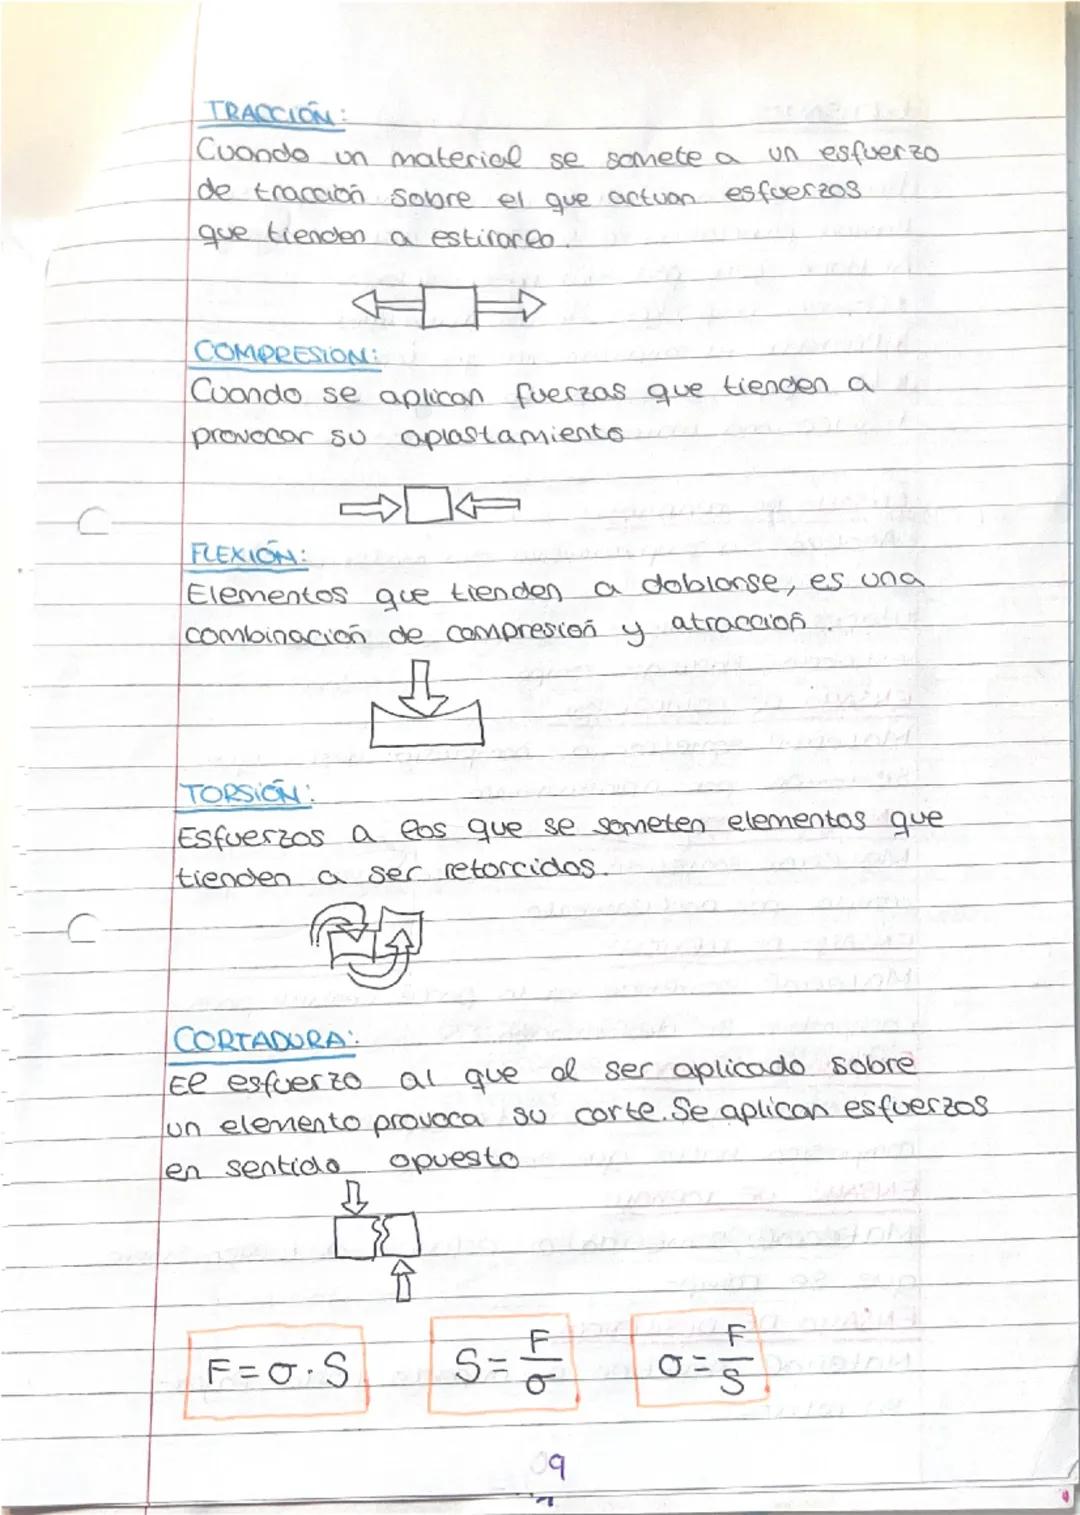 TRACCIÓN:
Cuando un material se somete a un esfuerzo
de tracción sobre el que actuan esfuerzos
que tienden a estirarlo.
COMPRESION:
Cuando se aplican fuerzas que tienden a
provocar su aplastamiento
FLEXIÓN:
Elementos que tienden a doblarse, es una
combinación de compresión y atracción.
TORSIÓN:
Esfuerzos a los que se someten elementos que
tienden a ser retorcidos.
CORTADURA:
El esfuerzo al que al ser aplicado sobre
un elemento provoca su corte. Se aplican esfuerzos
en sentido opuesto
F=σ·S S=F/σ σ=F/S
9